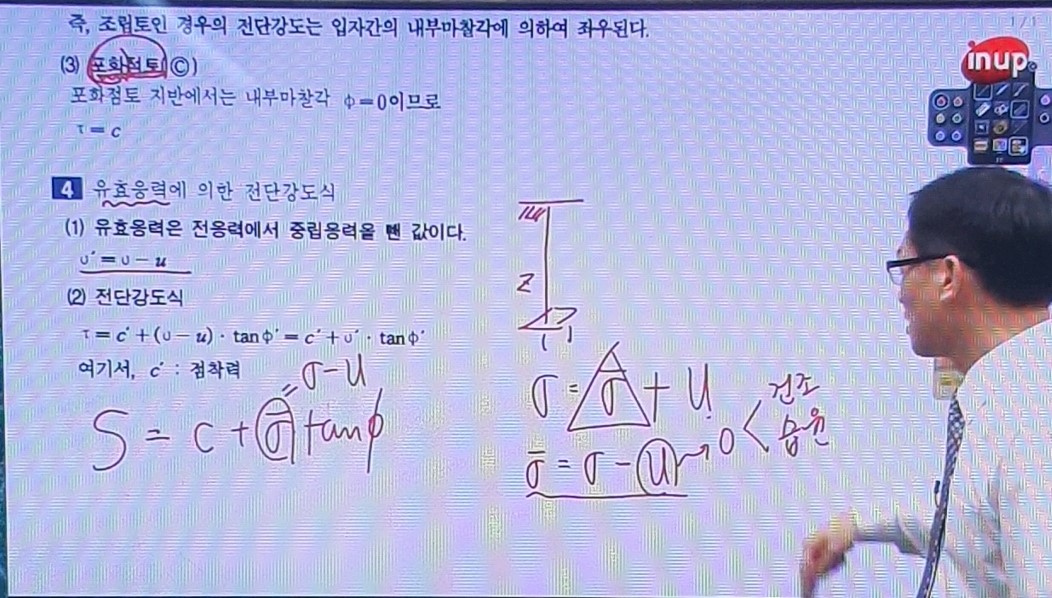 즉, 조립토인 경우의 전단강도는 입자간의 내부마찰각에 의하여 좌우된다.
1/1
inup
(3) 포화점토(C)
포화점토 지반에서는 내부마찰각 φ=0이므로
τ = c
4 유효응력에 의한 전단강도식
(1) 유효응력은 전응력에서 중립응력을 뺀 값이다.
σ′ = σ − u
(2) 전단강도식
τ = c′ + (σ − u) · tanφ′ = c′ + σ′ · tanφ′
여기서, c′ : 점착력
= σ-u
S = c + σ̄ tanφ
Z
1 1
σ = σ̄ + u
σ̄ = σ - u → 0 < 건조
습윤